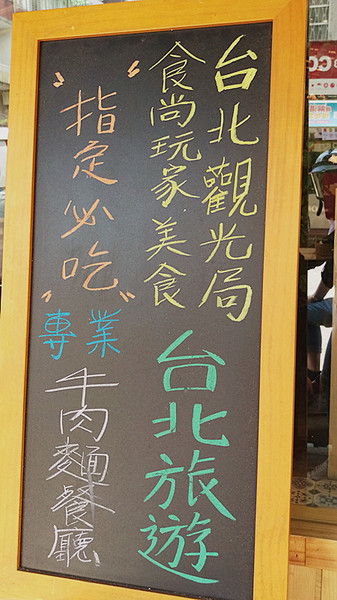 台北觀光局
食尚玩家美食
台北旅遊
"指定必吃"
專業
牛肉麵餐廳